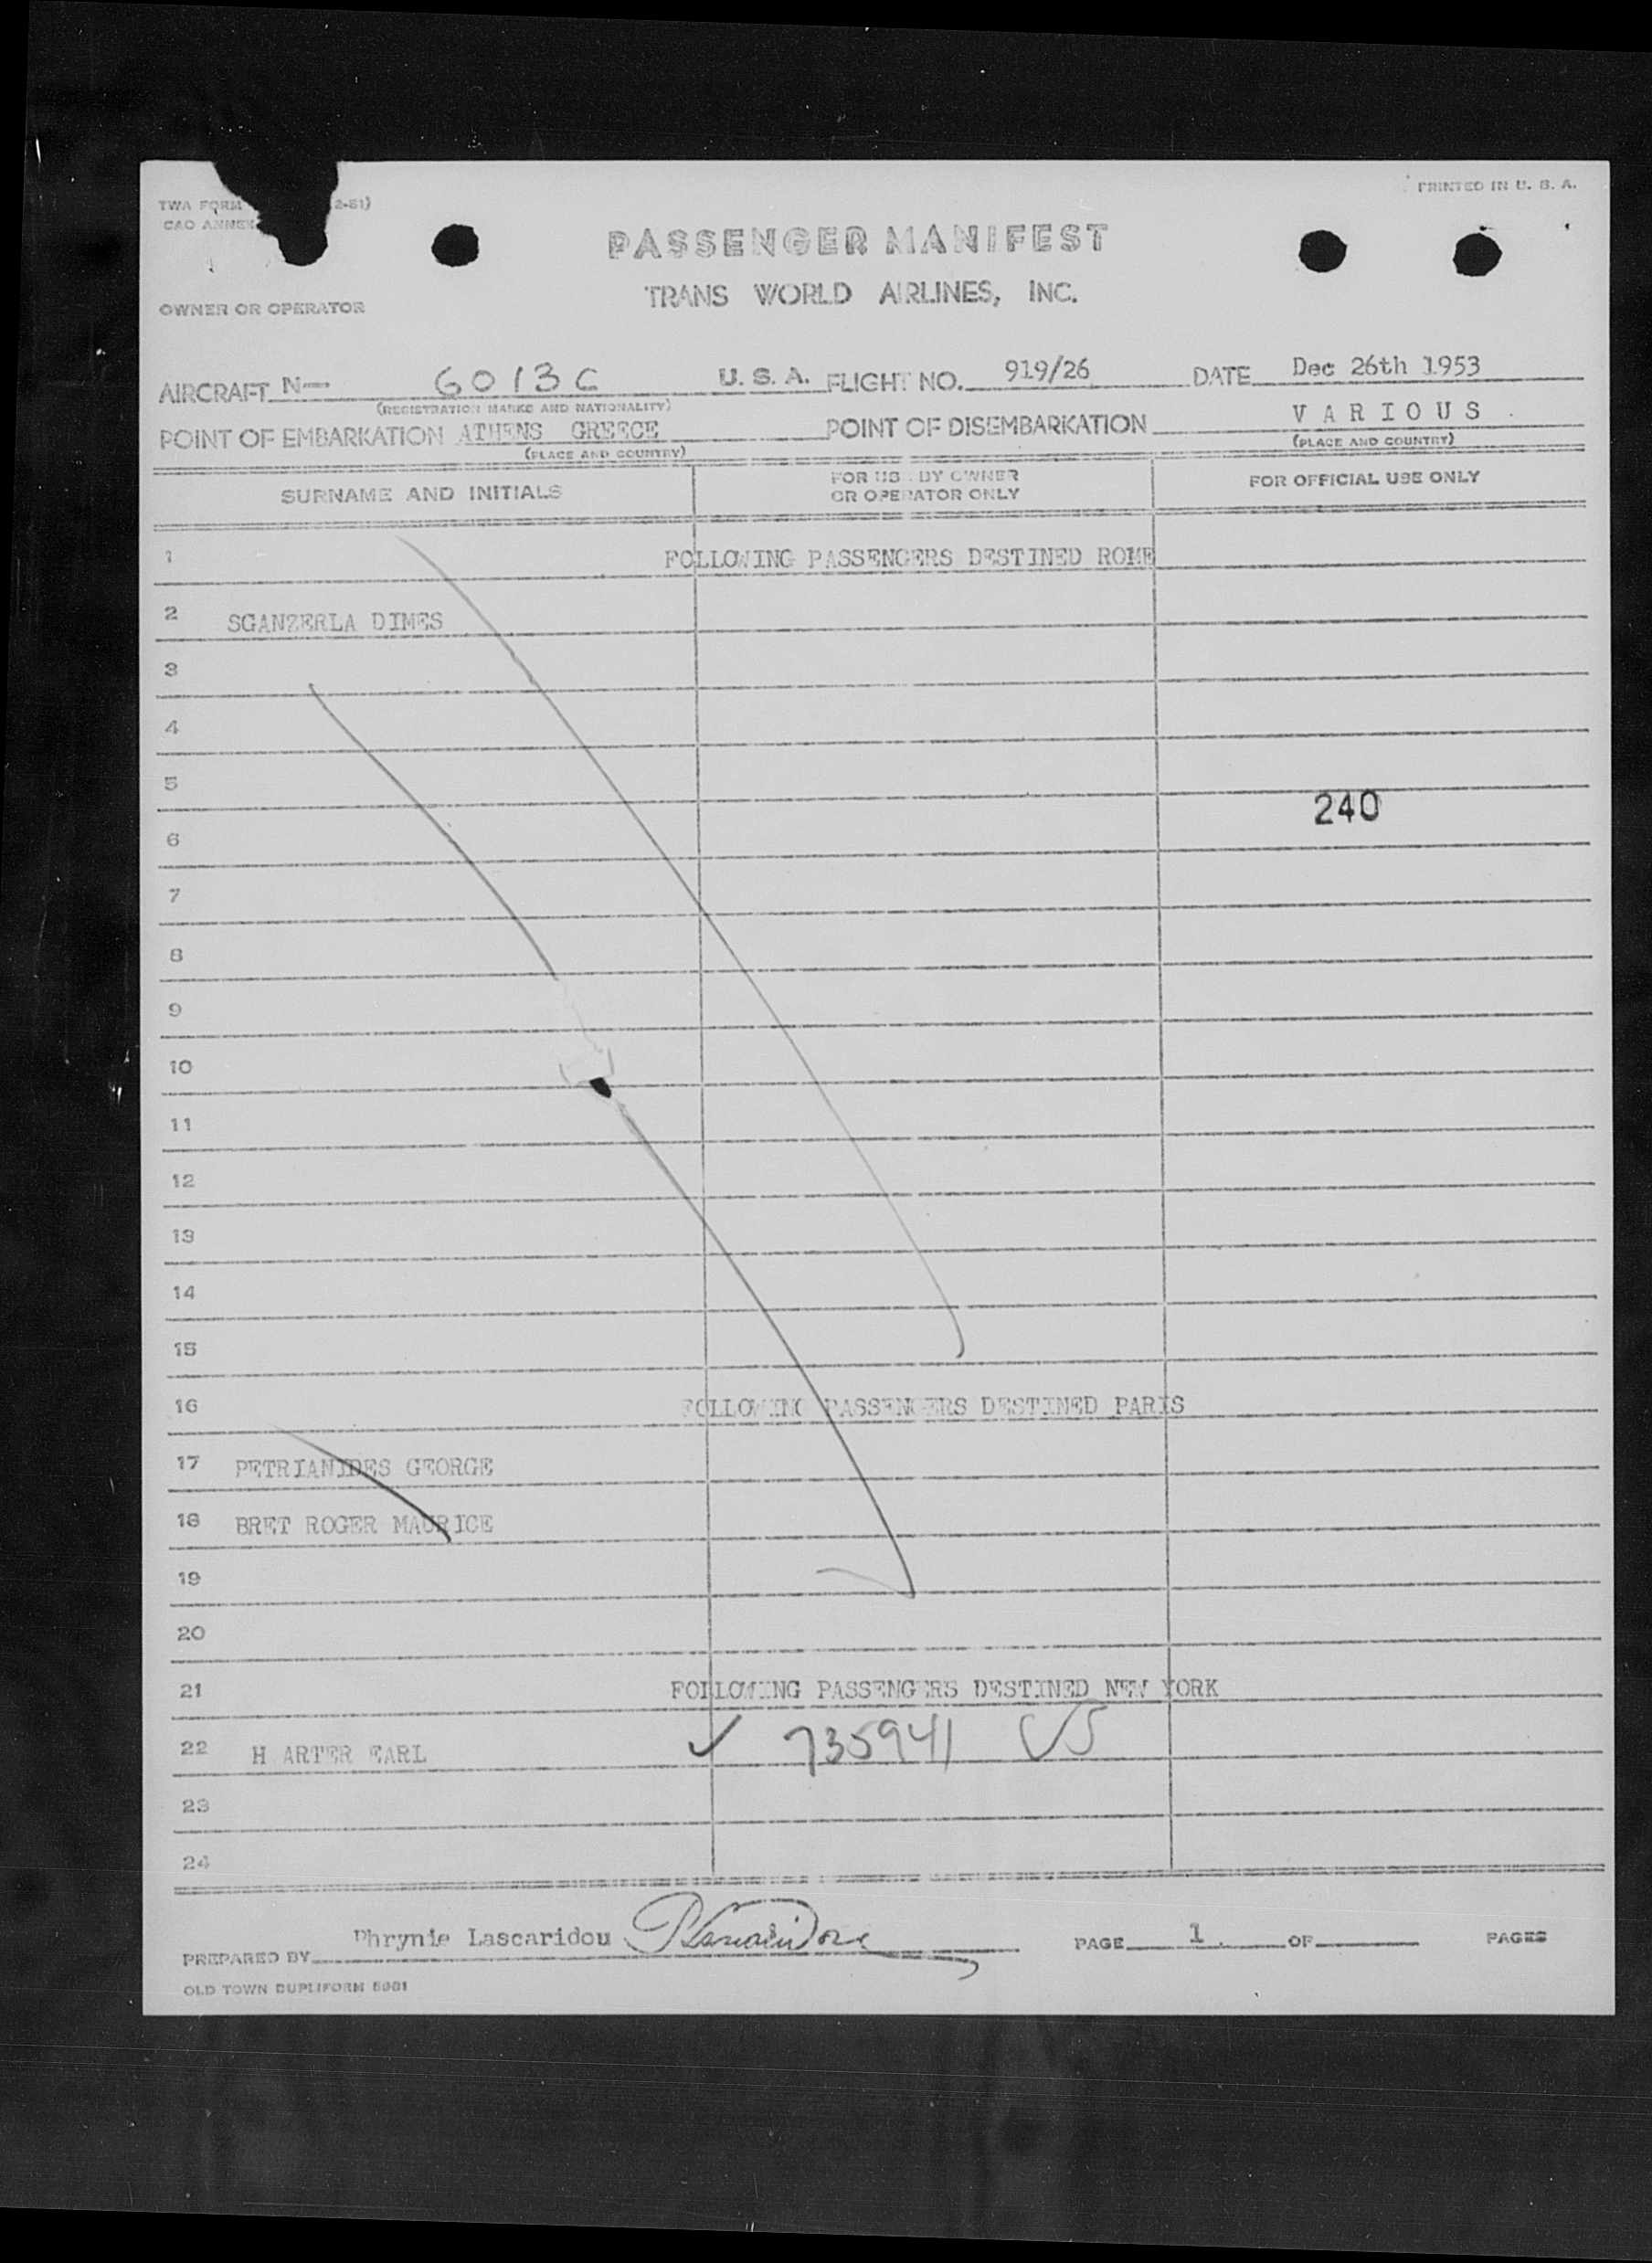 PRINTED IN U. S. A.
TWA FORM 2-51)
CAO ANNEX
PASSENGER MANIFEST
TRANS WORLD AIRLINES, INC.
OWNER OR OPERATOR
AIRCRAFT N— 6013C U. S. A. FLIGHT NO. 919/26 DATE Dec 26th 1953
(REGISTRATION MARKS AND NATIONALITY)
POINT OF EMBARKATION ATHENS GREECE POINT OF DISEMBARKATION VARIOUS
(PLACE AND COUNTRY) (PLACE AND COUNTRY)
SURNAME AND INITIALS FOR USE BY OWNER OR OPERATOR ONLY FOR OFFICIAL USE ONLY
1 FOLLOWING PASSENGERS DESTINED ROME
2 SGANZERLA DIMES
3
4
5
240
6
7
8
9
10
11
12
13
14
15
16 FOLLOWING PASSENGERS DESTINED PARIS
17 PETRIANIDES GEORGE
18 BRET ROGER MAURICE
19
20
21 FOLLOWING PASSENGERS DESTINED NEW YORK
22 H ARTER EARL ✓ 735941 US
23
24
PREPARED BY Phrynie Lascaridou PLascaridou PAGE 1. OF PAGES
OLD TOWN DUPLIFORM 5081